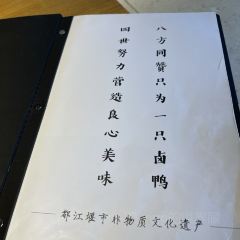 八方同赞只为一只卤鸭
四世努力营造良心美味
都江堰市非物质文化遗产